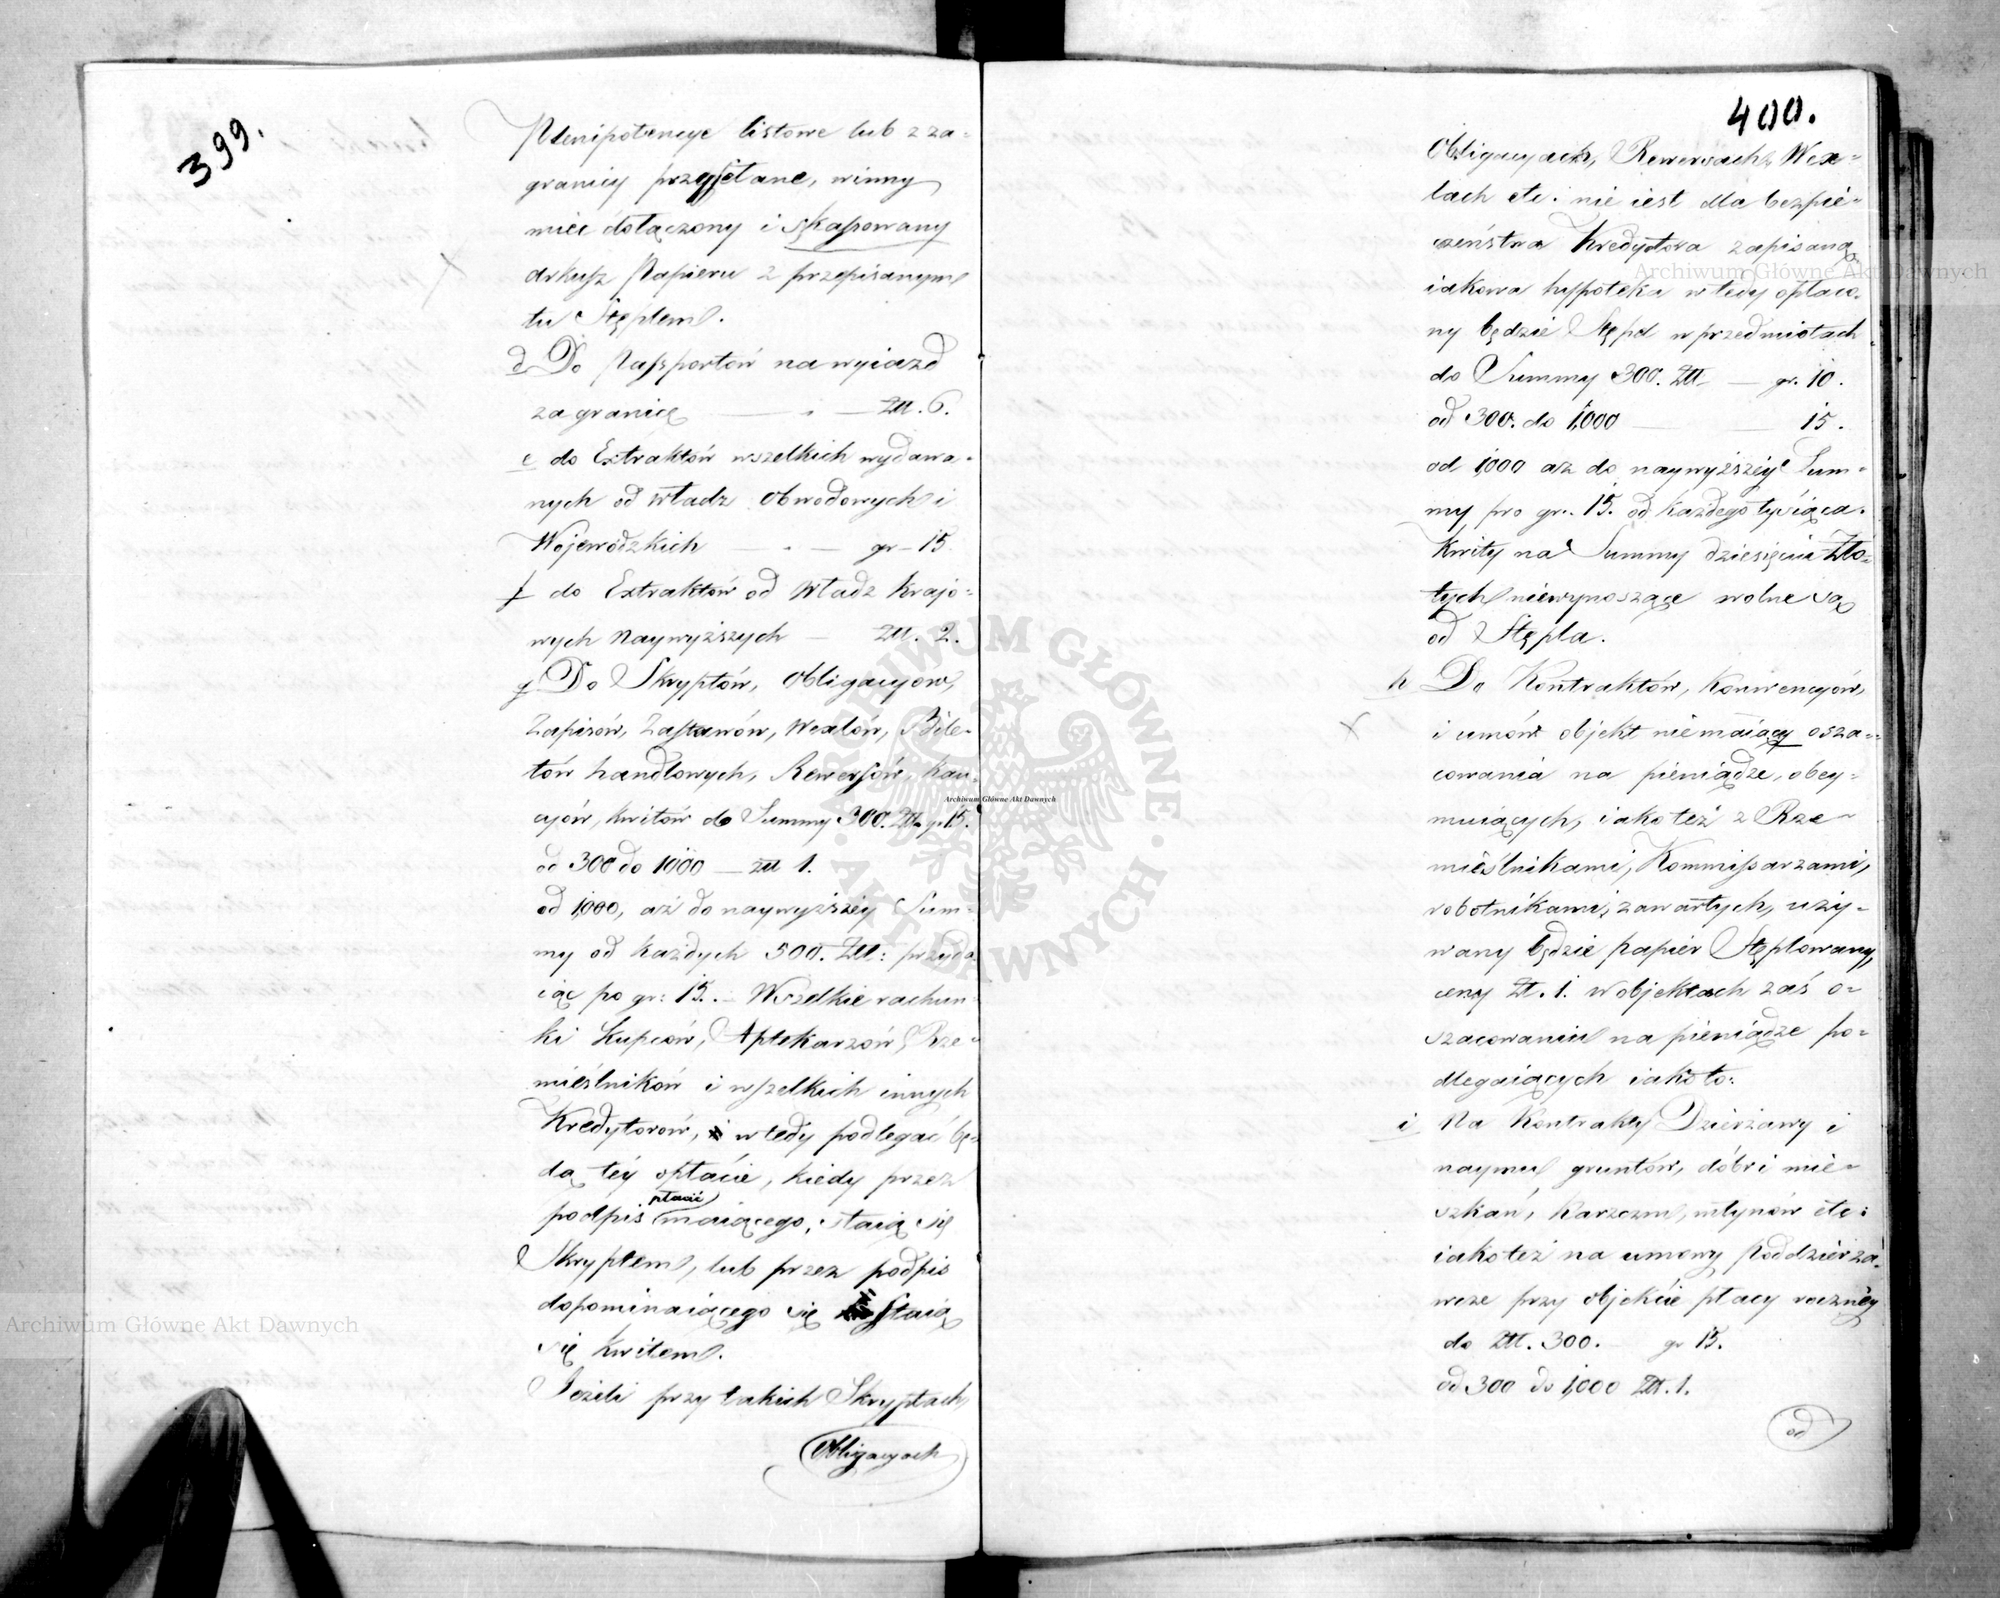 399.
Plenipotencye listowe lub z za=
granicy przysłane, winny
mieć dołączony i skassowany
arkusz Papieru z przepisanym
tu Stęplem.
d Do Passportów na wyiazd
za granicę — . — Złł. 6.
e do Extraktów wszelkich wydawa=
nych od władz obwodowych i
Wojewódzkich — . — gr – 15
f do Extraktów od Władz Krajo=
wych Naywyższych — Złł. 2.
g Do Skryptów, Obligacyow,
Zapisów, Zastawów, Wexlów, Bile=
tów handlowych, Rewersów, kau=
cyów, kwitów do Summy 300. Złł. gr 15.
od 300 do 1000 — złł 1.
od 1,000, aż do naywyższéy Sum=
my od każdych 500. Złł: przyda
iąc po gr: 15. – Wszelkie rachun=
ki Kupców, Aptekarzów, Rze=
mieślników i wszelkich innych
Kredytorów, wtedy podlegać bę=
dą téy opłacie, kiedy przez
płacić
podpis maiącego, staią się
Skryptem, lub przez podpis
dopominaiącego się staią
się kwitem.
Jeżeli przy takich Skryptach,
Obligacyach
400.
Obligacyach, Rewersach, Wex=
lach etc. nie iest dla bezpie=
czeństwa Kredytora zapisaną
iakowa hypoteka wtedy opłaco=
ny będzie Stępel w przedmiotach
do Summy 300. Złł. — gr. 10.
od 300. do 1,000 — 15.
od 1,000 aż do naywyższéy Sum=
my, pro gr. 15. od każdego tysiąca.
Kwity na Summy dziesięciu Zło=
tych niewynoszące wolne są
od Stępla.
h Do Kontraktów, Konwencyów,
i umów objekt niemaiący osza=
cowania na pieniądze, obey=
muiących, iakoteż z Rze=
mieślnikami, Kommissarzami,
robotnikami, zawartych, uży=
wany będzie papier Stęplowany,
ceny Zł. 1. w objektach zaś o=
szacowaniu na pieniądze po=
dlegaiących iako to:
i Na Kontrakty Dzierżawy i
naymu gruntów, dóbr i mie=
szkań, karczem, młynów etc:
iakoteż na umowy Poddzierża=
wcze przy objekcie płacy rocznéy
do Złł. 300. — gr 15.
od 300 do 1,000 Złł. 1.
od
Archiwum Główne Akt Dawnych
Archiwum Główne Akt Dawnych
Archiwum Główne Akt Dawnych
ARCHIWUM GŁÓWNE · AKT DAWNYCH ·